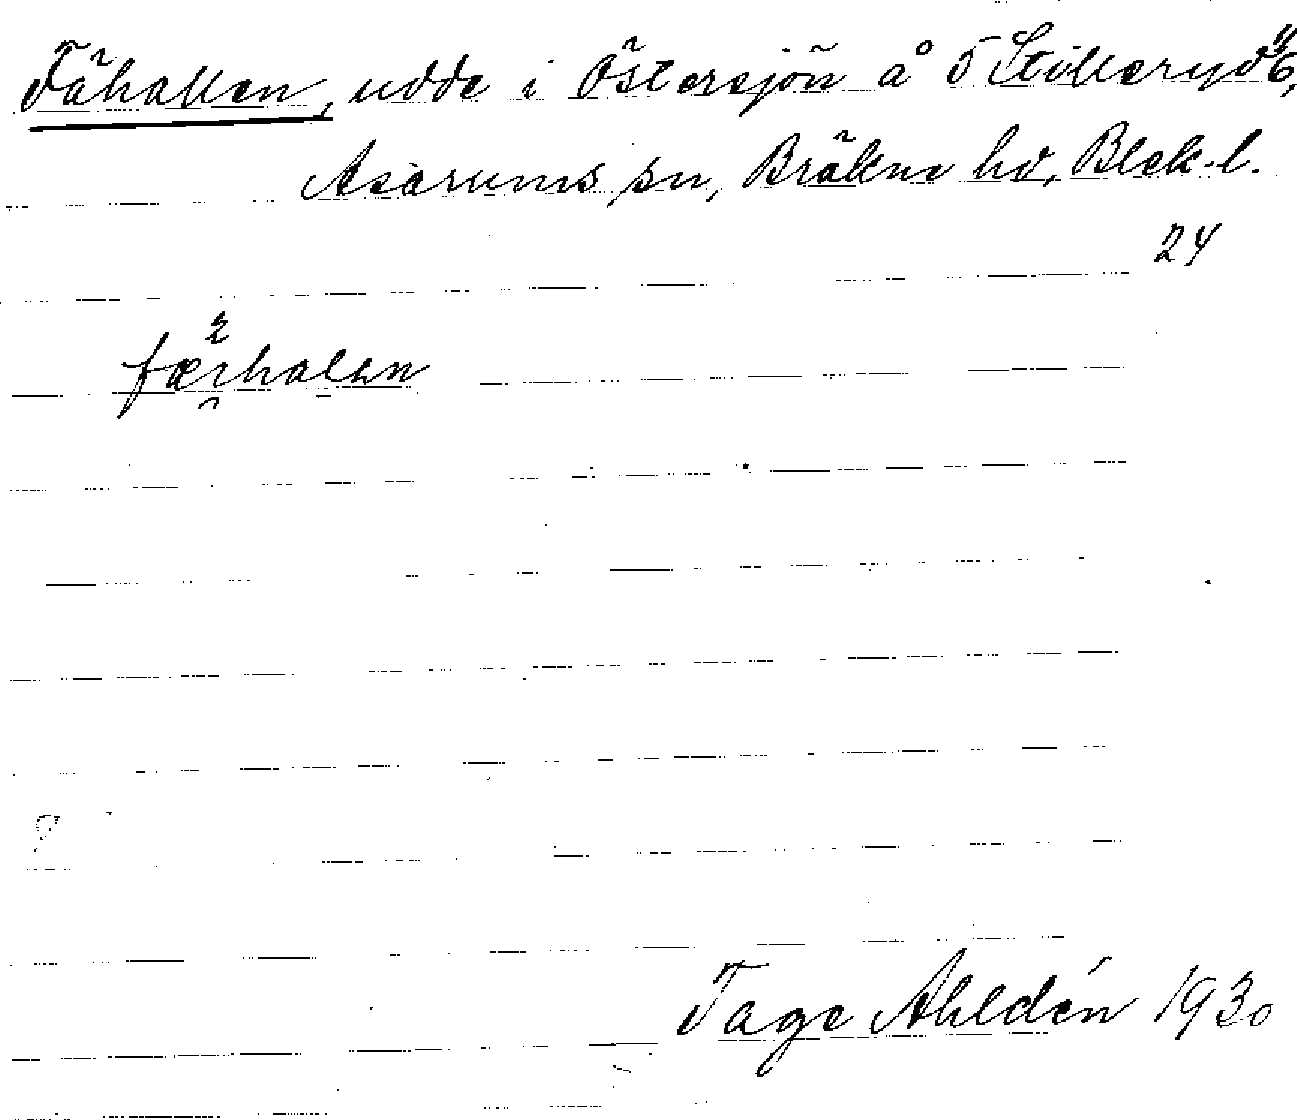 Fähallen, udde i Östersjön å 5 Stilleryd 6,
Asarums sn, Bräkne hd, Blek. l.
24
Tage Ahldén 1930